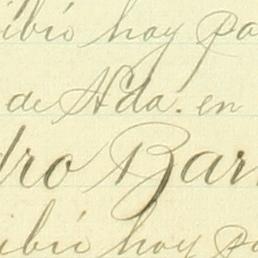 ibió hoy pa
de Hda. en
dro Barr
ibió hoy pa